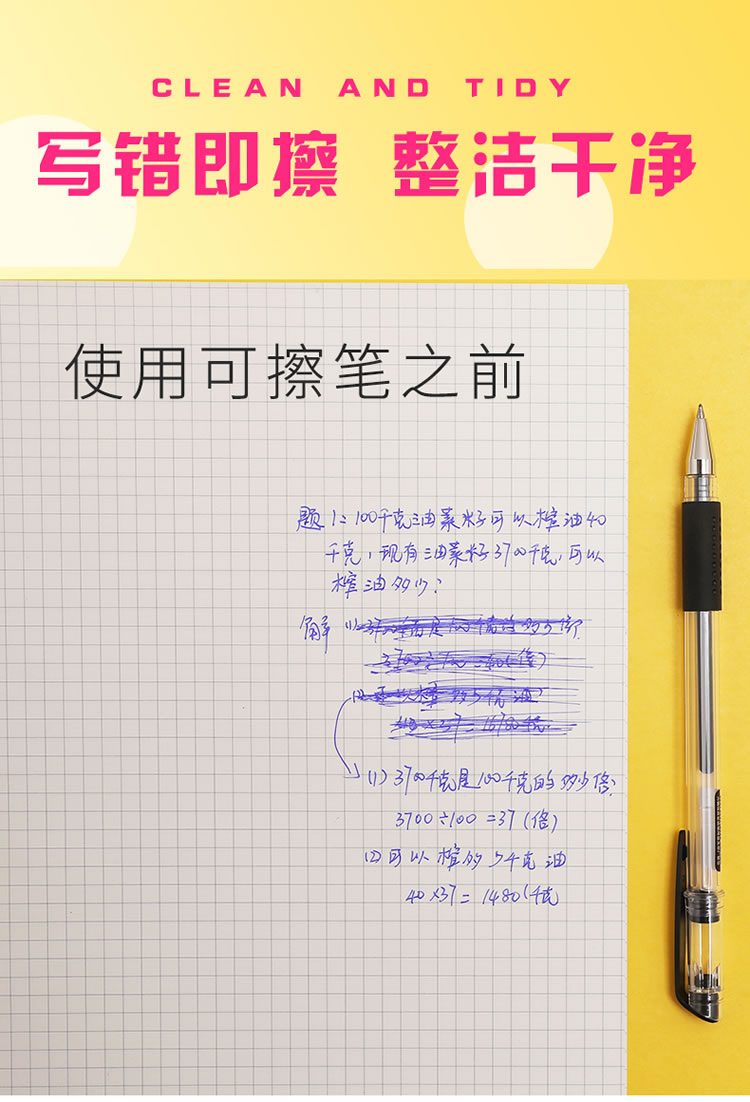 CLEAN AND TIDY
写错即擦 整洁干净
使用可擦笔之前
题1: 100千克油菜籽可以榨油40
千克,现有油菜籽3700千克,可以
榨油多少?
解
(1) 3700千克是100千克的多少倍:
3700÷100=37(倍)
(2)可以榨多少千克油
40×37=1480(千克